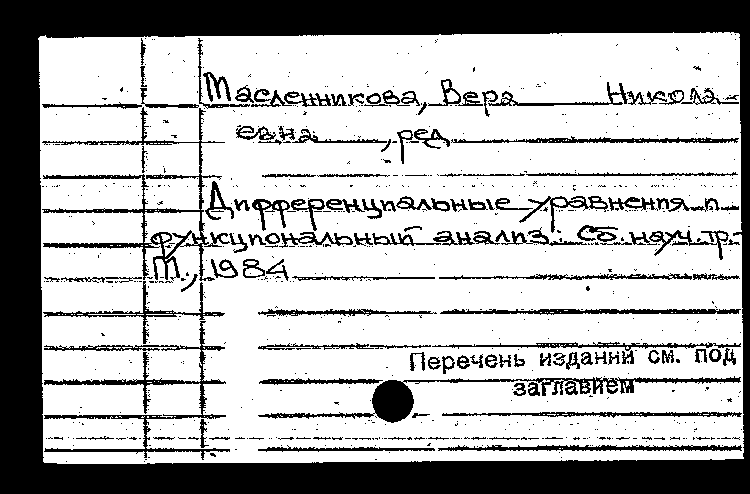 Масленникова, Вера Никола-
евна , ред.
Дифференциальные уравнения и
функциональный анализ: Сб. науч. тр.-
М., 1984
Перечень изданий см. под
заглавием